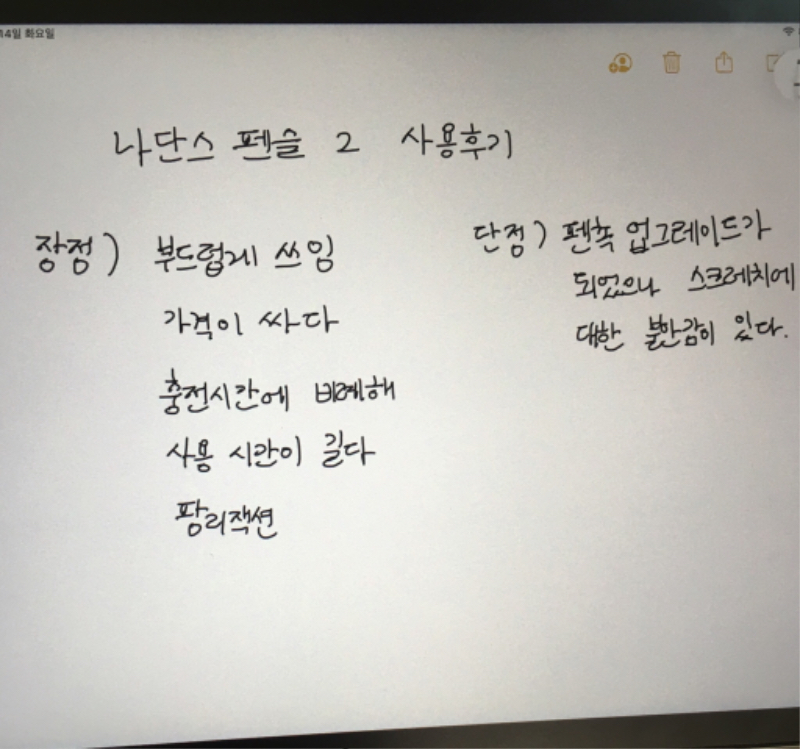 14일 화요일
나단스 펜슬 2 사용후기
장정) 부드럽게 쓰임
가격이 싸다
충전시간에 비례해
사용 시간이 길다
팜리잭션
단정) 펜촉 업그레이드가
되었으나 스크레치에
대한 불안감이 있다.